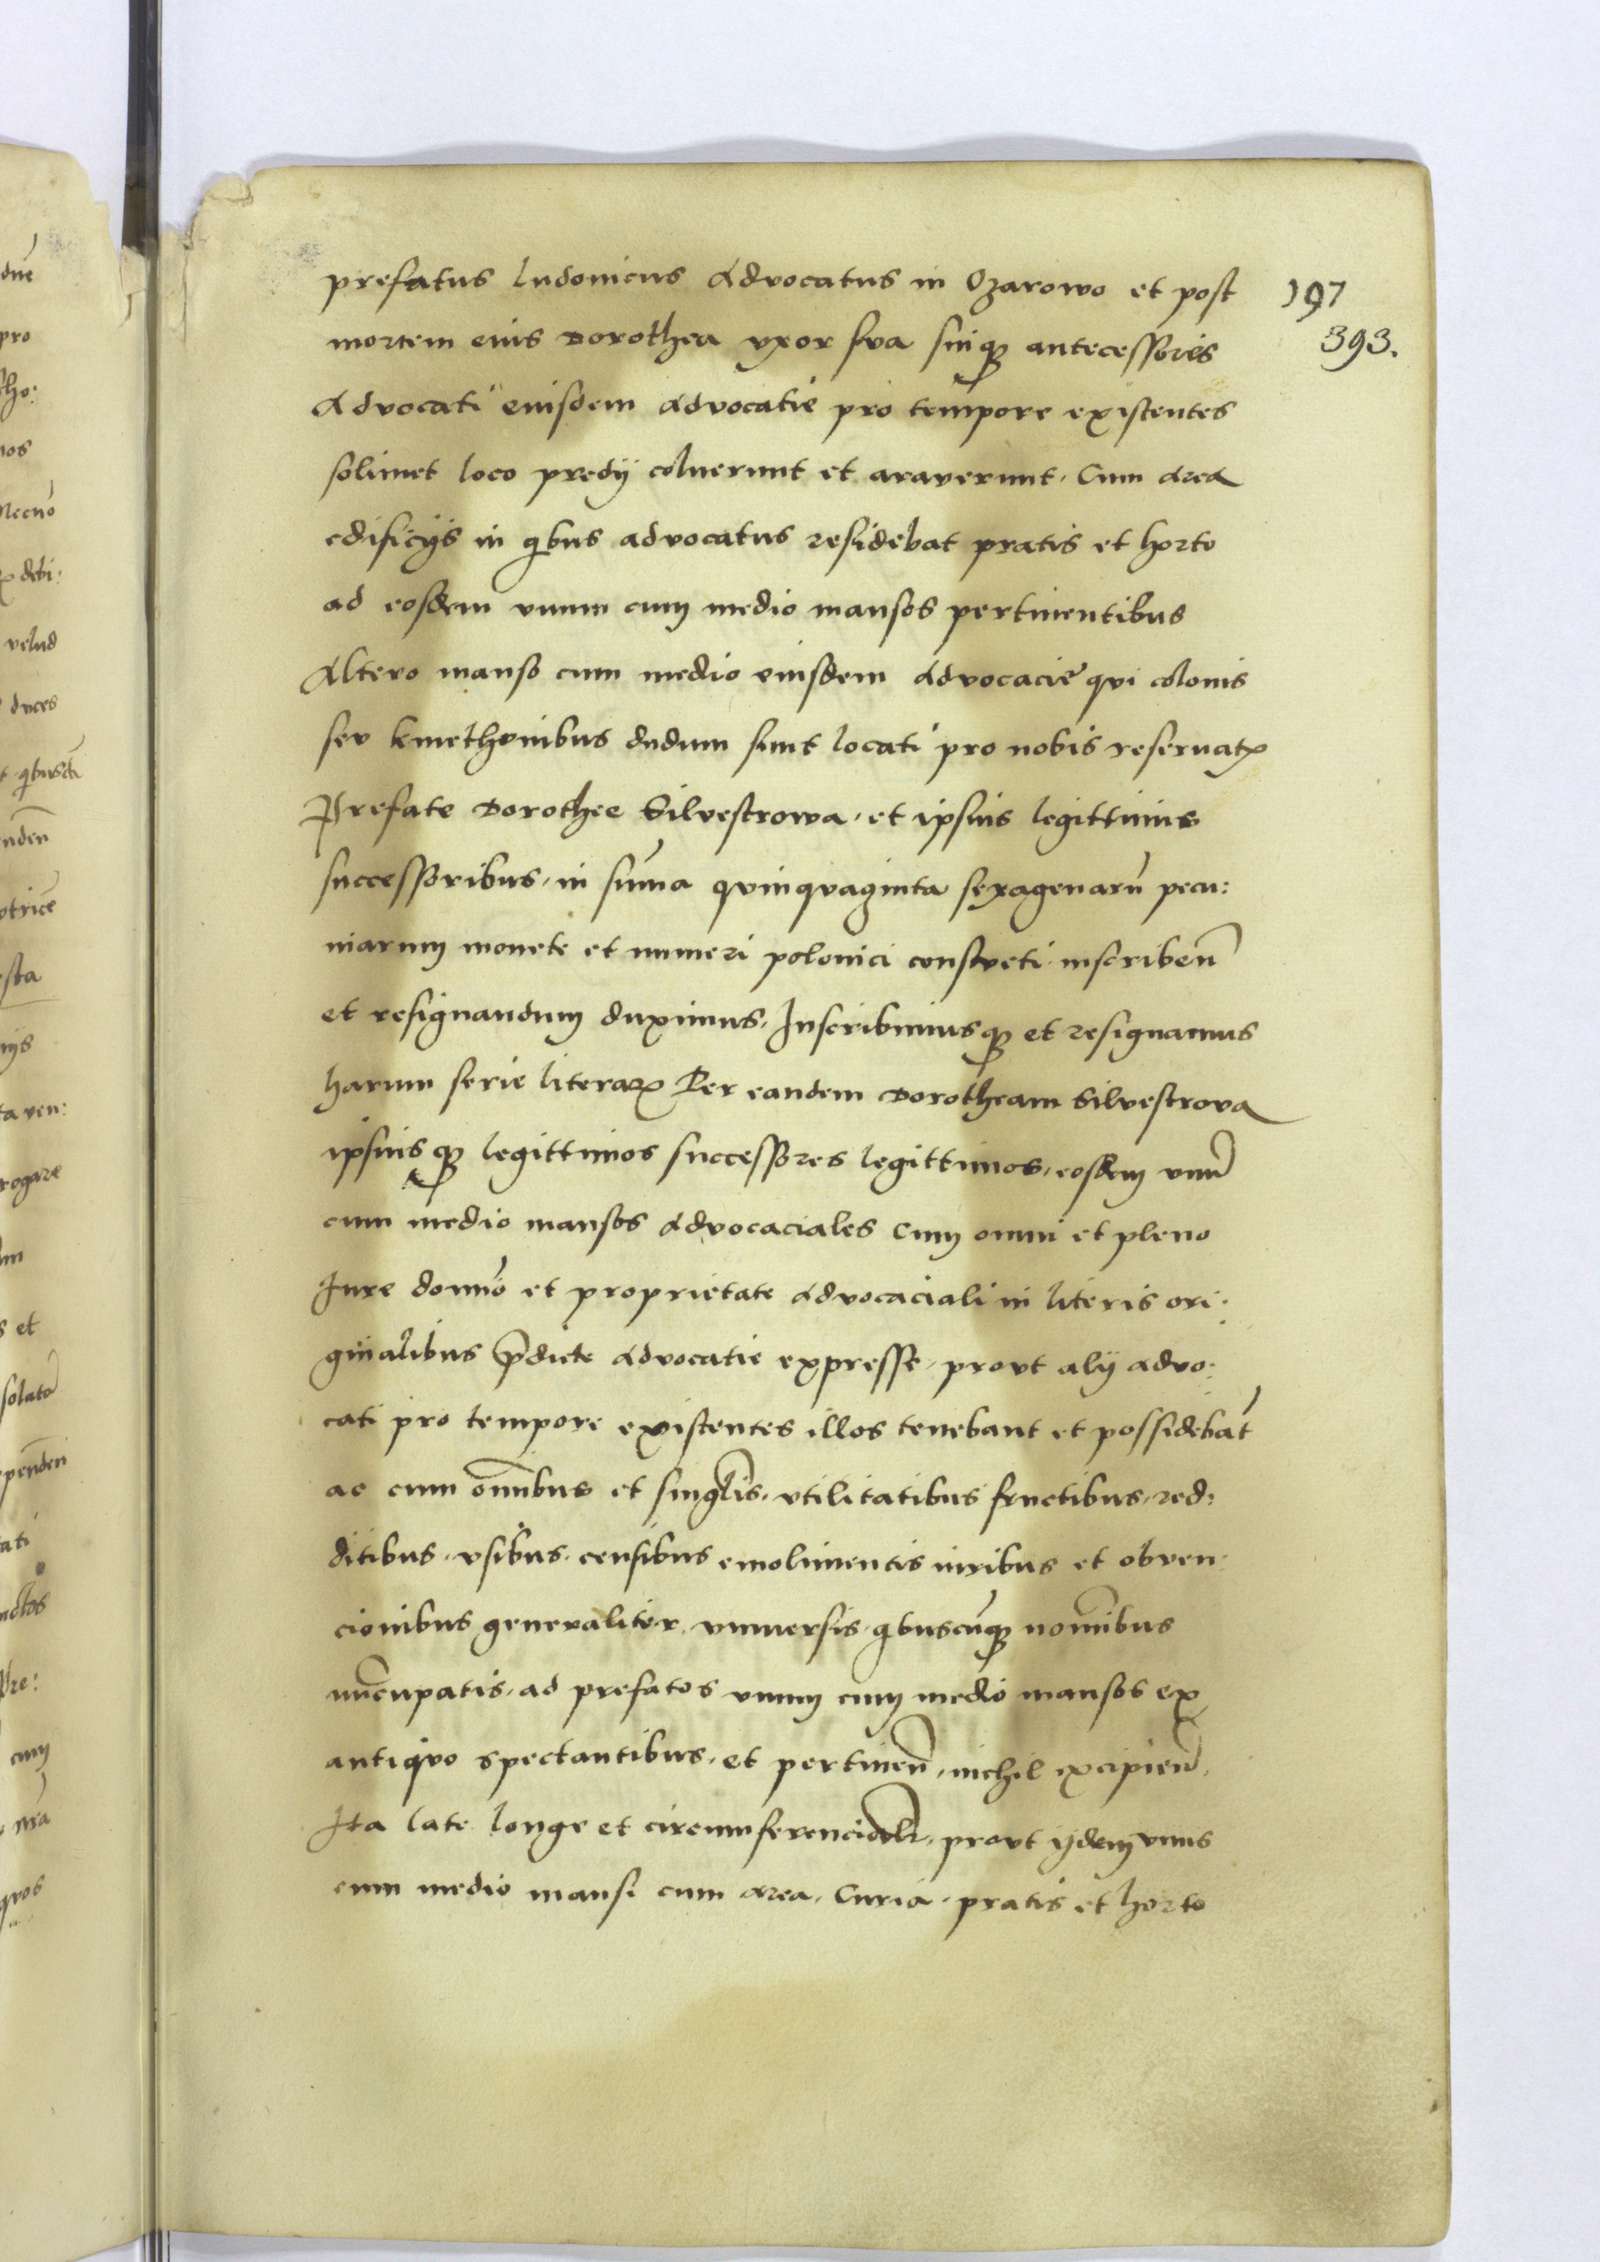 prefatus ludovicus Advocatus in Ozarowo et post
197
mortem eius Dorothea vxor sua suiq antecessores
393.
Advocati eiusdem advocatie pro tempore existentes
solimet loco predij coluerunt et araverunt. Cum area
edificijs in qbus advocatus residebat pratis et horto
ad eosdem vnum cum medio mansos pertinentibus
Altero manso cum medio eiusdem Advocacie qui colonis
seu kmethonibus dudum sunt locati pro nobis reservatꝫ
Prefate Dorothee Silvestrowa, et ipsius legittimis
successoribus, in suma quinquaginta sexagenarū pecu:
niarum monete et numeri polonici consueti inscribeñ
et resignandum duximus, Inscribimusq et resignamus
harum serie literaꝝ Per eandem Dorotheam Silvestrova
ipsiusq legittimos successores legittimos, eosdem vnū
cum medio mansos Advocaciales Cum omni et pleno
Iure domīo et proprietate Advocaciali in literis ori:
ginalibus p̄dicte Advocatie expresse, prout alij advo:
cati pro tempore existentes illos tenebant et possidebāt
ac cum om̄ibus et singlis, vtilitatibus fructibus, red:
ditibus, vsibus, censibus emolimentis iuribus et obven:
cionibus generaliter vniversis, qbuscūq nom̄ibus
nūcupatis, ad prefatos vnum cum medio mansos ex
antiquo spectantibus, et pertineñ, nichil excipieñ,
Ita late longe et circumferencialr, prout ijdem vnus
cum medio mansi cum area, Curia, pratis et horto